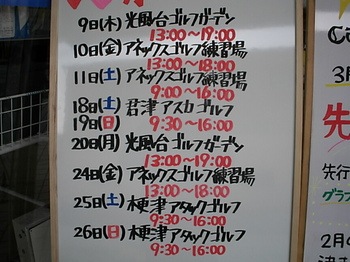 9日(木) 光風台ゴルフガーデン
13:00〜19:00
10日(金) アネックスゴルフ練習場
13:00〜18:00
11日(土) アネックスゴルフ練習場
9:00〜16:00
18日(土) 君津アスカゴルフ
19日(日) 9:30〜16:00
20日(月) 光風台ゴルフガーデン
13:00〜19:00
24日(金) アネックスゴルフ練習場
13:00〜18:00
25日(土) 木更津アタックゴルフ
9:30〜16:00
26日(日) 木更津アタックゴルフ
9:30〜16:00
3月
先
先行
グラフ
2月